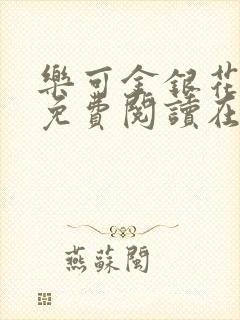 樂可金銀花
免費閱讀在
燕蘇閩